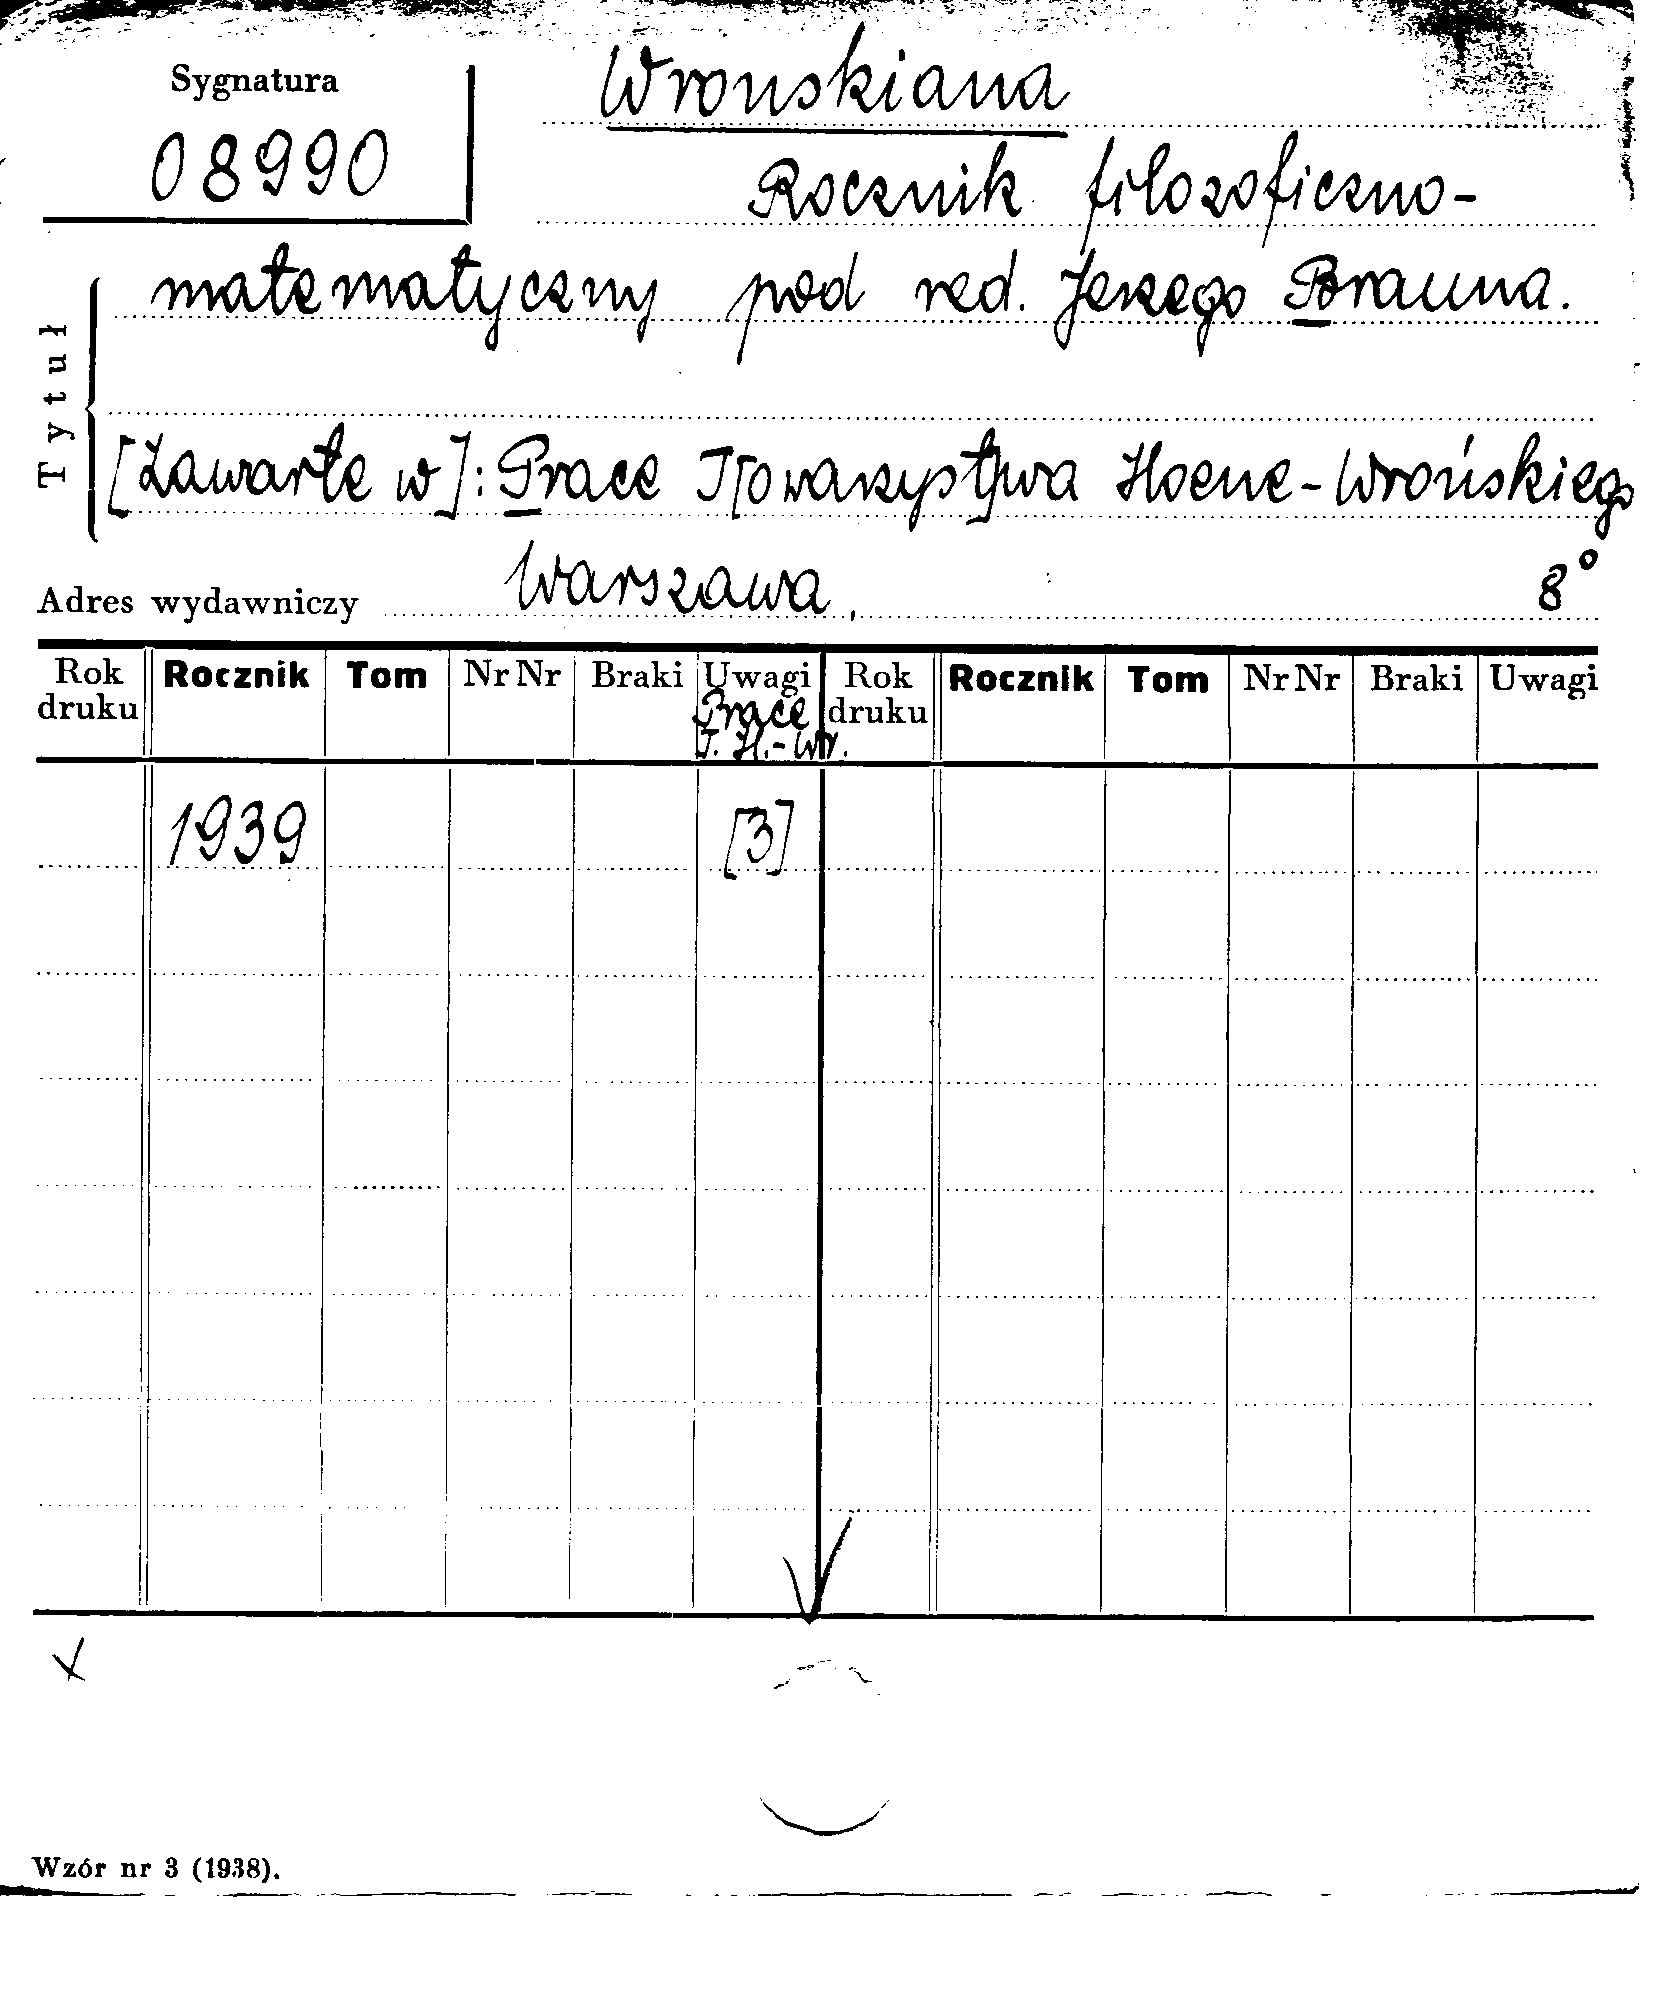 Sygnatura
08990
Wronskiana
Rocznik filozoficzno-
matematyczny pod red. Jerzego Brauna.
Tytuł
[Zawarte w]: Prace T[owarzyst]wa Hoene-Wrońskiego
Adres wydawniczy Warszawa, 8°
Rok druku Rocznik Tom Nr Nr Braki Uwagi Rok druku Rocznik Tom Nr Nr Braki Uwagi
Prace
T. H.-Wr.
1939 [3]
Wzór nr 3 (1938).